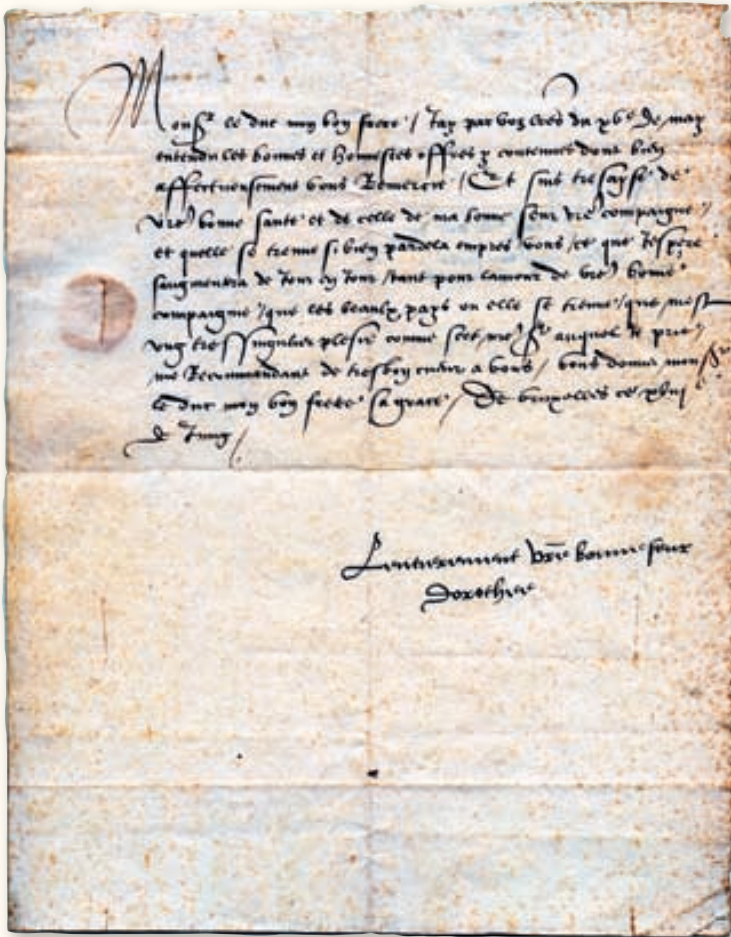 Monsr le duc mon bon frere / Jay par voz lres du xve de may
entendu les bonnes et honnestes offres y contenues dont bien
affectueusement vous Remercie / Et suis tresayse de
vre bonne sante et de celle de ma bonne seur vre compaigne /
et quelle se treuve si bien pardela empres vous / ce que Jespere
saugmentra de Jour en Jour / tant pour lamour de vre bonne
compaignie / que les beaulx pays ou elle se treuve / que mest
ung tressingulier plesir comme scet nre sr auquel Je prie /
me Recommandant de tresbon cueur a vous / vous donner monsr
le duc mon bon frere sa grace / De bruxelles ce
de Jung /
Lentierement vre bonne seur
Dorothee